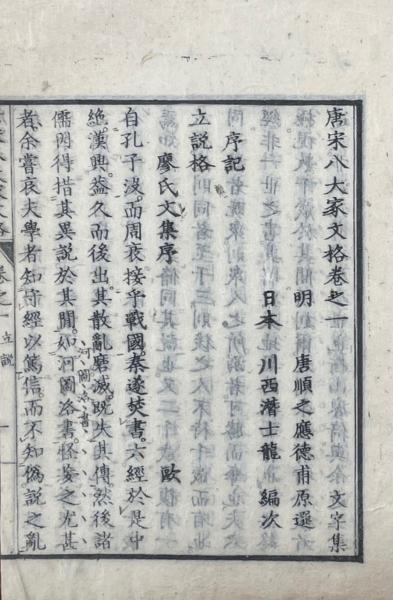 唐宋八大家文格卷之一
文字集
明 唐順之應德甫原選
日本 川西潛士龍 編次
序記
立說格
廖氏文集序 歐
自孔子沒而周衰接乎戰國秦遂焚書六經於是中
絕漢興蓋久而後出其散亂磨滅既失其傳然後諸
儒因得措其異說於其間如河圖洛書怪妄之尤甚
者余嘗哀夫學者知守經以篤信而不知偽說之亂
卷之一
立說